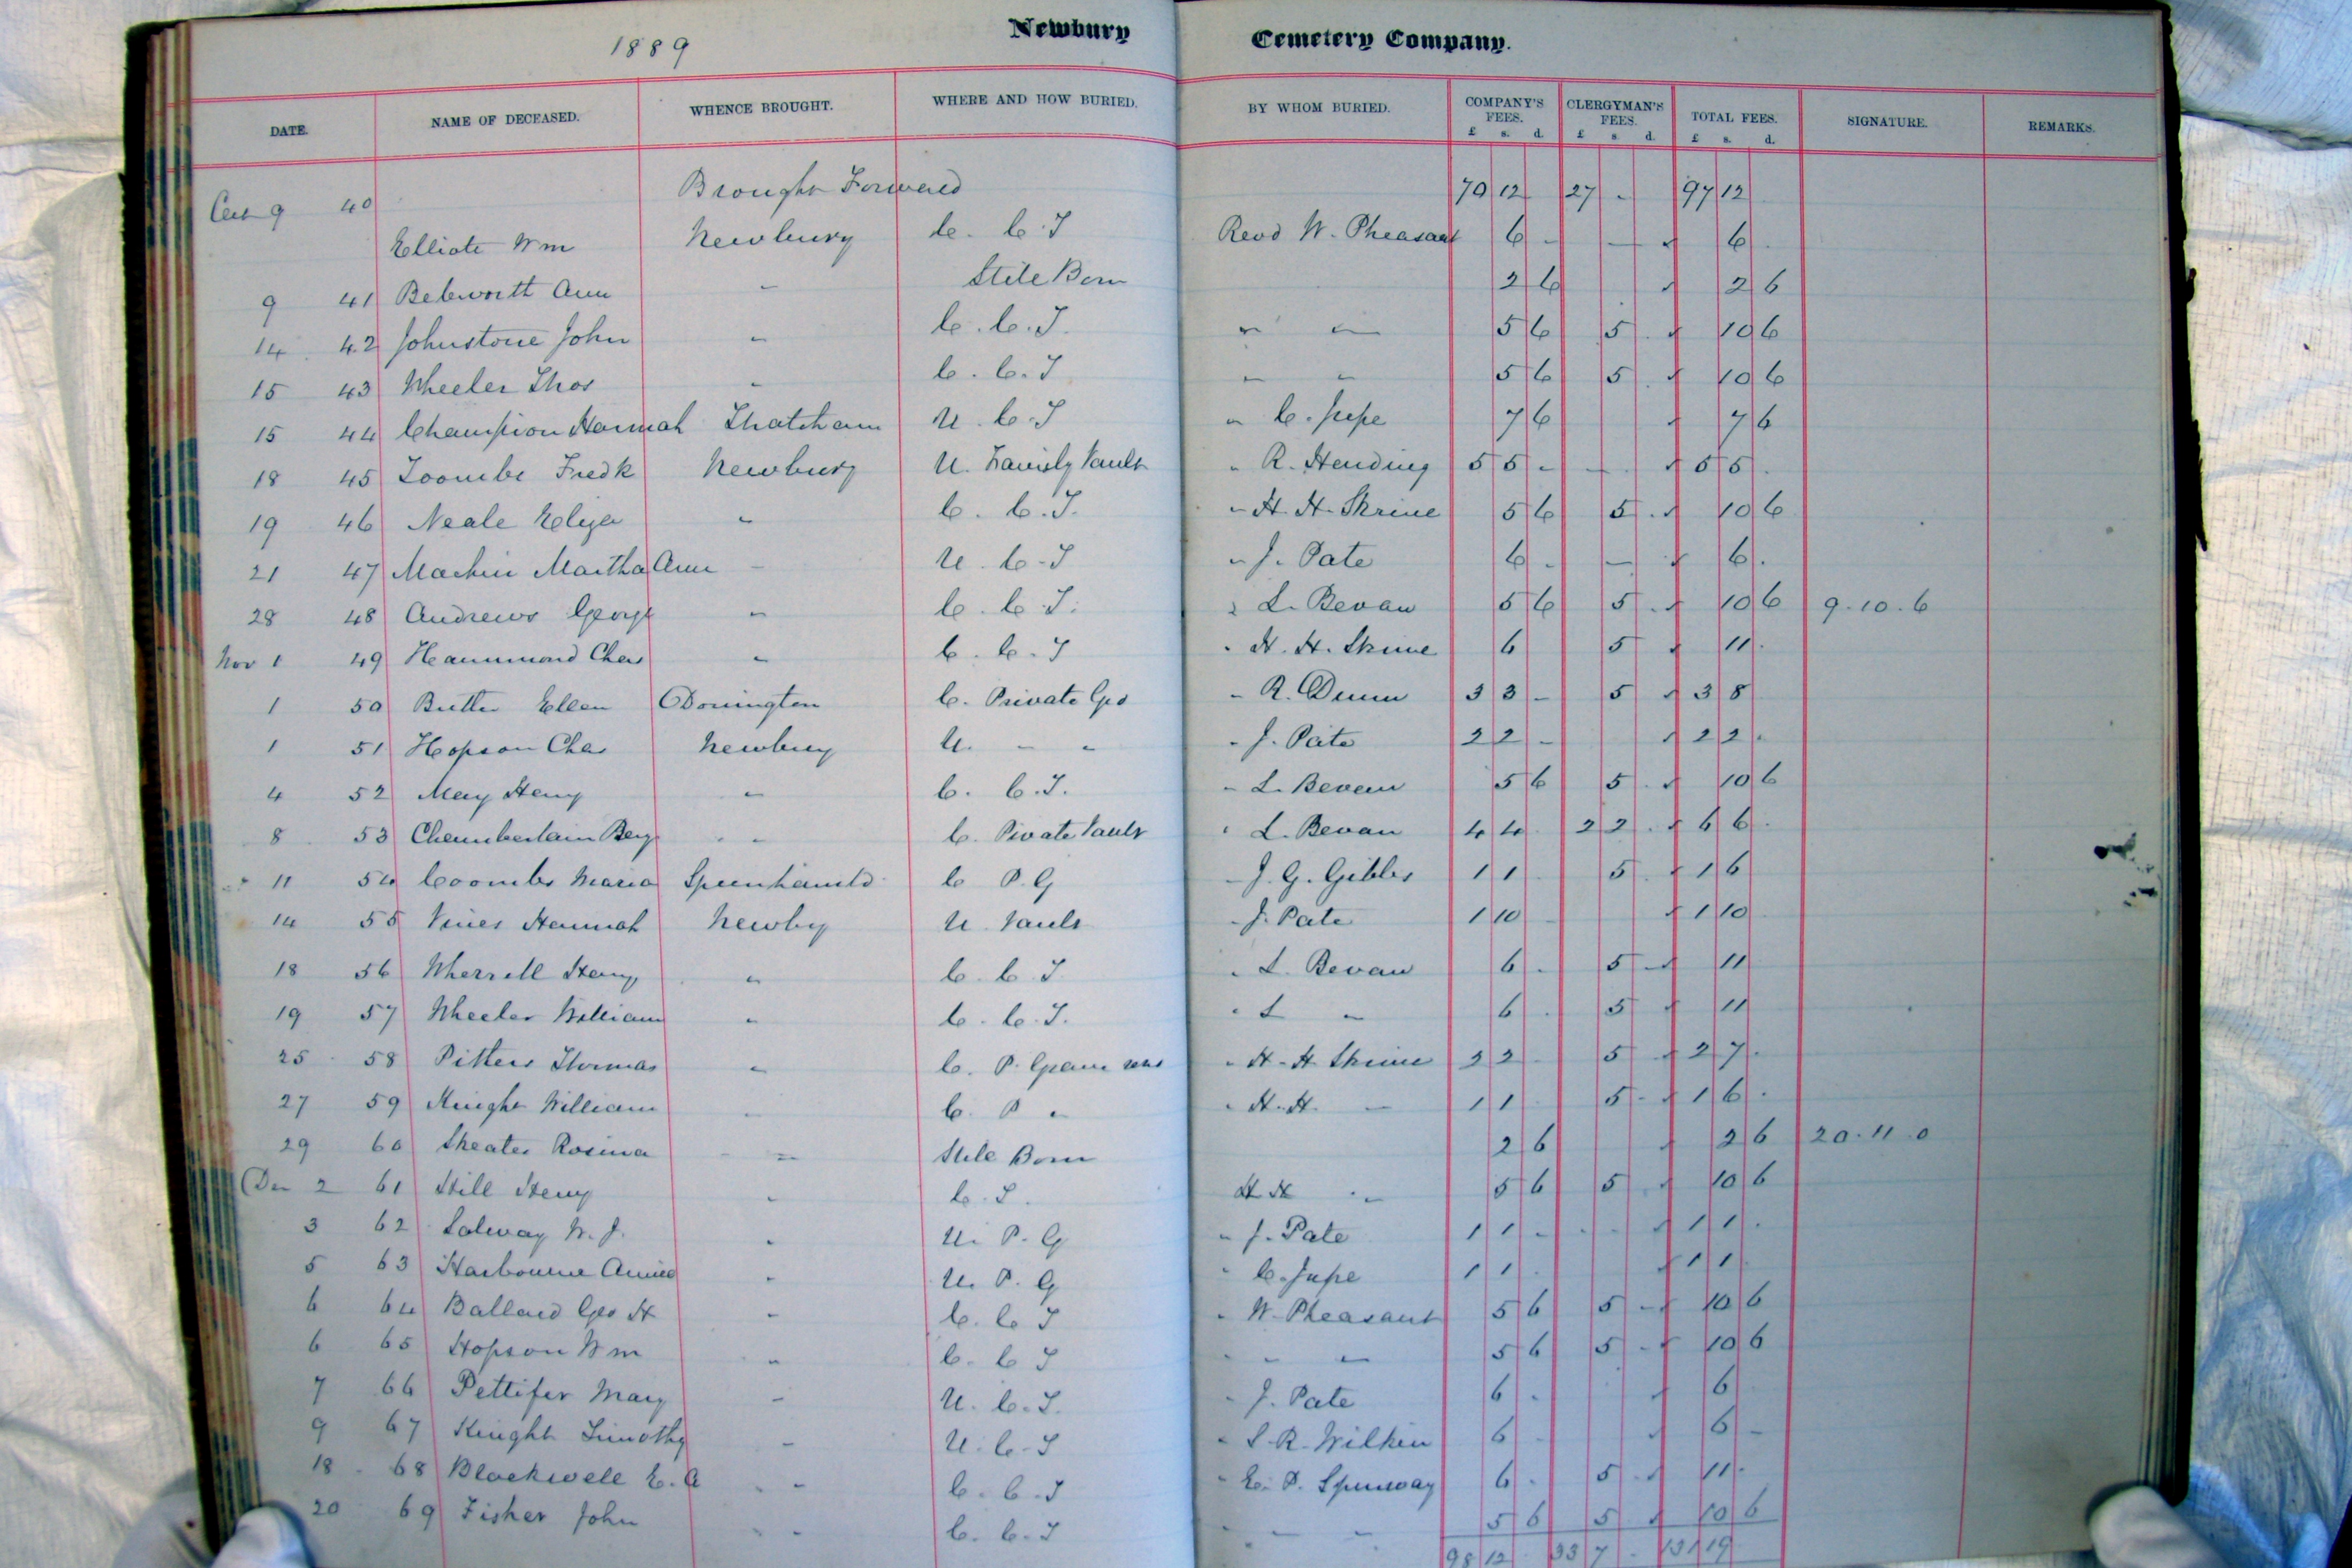 1889 Newbury Cemetery Company.
DATE. NAME OF DECEASED. WHENCE BROUGHT. WHERE AND HOW BURIED. BY WHOM BURIED. COMPANY'S FEES. £ s. d. CLERGYMAN'S FEES. £ s. d. TOTAL FEES. £ s. d. SIGNATURE. REMARKS.
Brought Forward 70 12 27 - 97 12
9 40 Elliote Wm Newbury C. C. I Revd W. Pheasant 6 - - 6
9 41 Ann " Stile Born 2 6 2 6
14 42 Johnstone John " C. C. I. " " 5 6 5 10 6
15 43 Wheeler Thos " C. C. I " " 5 6 5 10 6
15 44 Champion Hannah Thatcham U. C. I " C. Jupe 7 6 7 6
18 45 Toombs Fredk Newbury U. Family Vault " R. 5 5 - - 5 5
19 46 Neale Eliza " C. C. I. " H. H. Skrine 5 6 5 10 6
21 47 Machin Martha Ann - U. C. I " J. Pate 6 - - 6
28 48 Andrews George " C. C. I. " L. Bevan 5 6 5 10 6 9.10.6
Nov 1 49 Hammond Chas " C. C. I " H. H. Skrine 6 5 11
1 50 Butler Ellen Donington C. Private Gra " R. Dunn 3 3 - 5 3 8
1 51 Hopson Chas Newbury U. - " " J. Pate 2 2 - 2 2
4 52 May Henry " C. C. I. " L. Bevan 5 6 5 10 6
8 53 Chamberlain Benj " C. Private Vault " L. Bevan 4 4 2 2 6 6
11 54 Coombs Maria Speenhamld C P. G " J. G. Gibbs 1 1 5 1 6
14 55 Vines Hannah Newby U. Vault " J. Pate 1 10 - 1 10
18 56 Wherrell Henry " C. C. I " L. Bevan 6 - 5 - 11
19 57 Wheeler William " C. C. I. " L " 6 5 11
25 58 Pitters Thomas " C. P. Grave " H. H. Skrine 2 2 5 2 7
27 59 Knight William " C. P " " H. H. - 1 1 5 - 1 6
29 60 Skeates Rosina " Stile Born 2 6 2 6 20.11.0
Dec 2 61 Hill Henry " C. I. H H " 5 6 5 10 6
3 62 Salway W. J. " U. P. G " J. Pate 1 1 - 1 1
5 63 Harbourne Annie " U. P. G " C. Jupe 1 1 1 1
6 64 Ballard Geo H " C. C I " W. Pheasant 5 6 5 - 10 6
6 65 Hopson Wm " C. C I " " " 5 6 5 - 10 6
7 66 Pettifer Mary - U. C. I. " J. Pate 6 - 6
9 67 Knight Timothy - U. C. I " S. R. Wilkin 6 - 6 -
18 68 Blackwell E. A " C. C. I " E. P. Spurway 6 5 11
20 69 Fisher John " C. C. I " " " 5 6 5 10 6
98 12 33 7 - 131 19